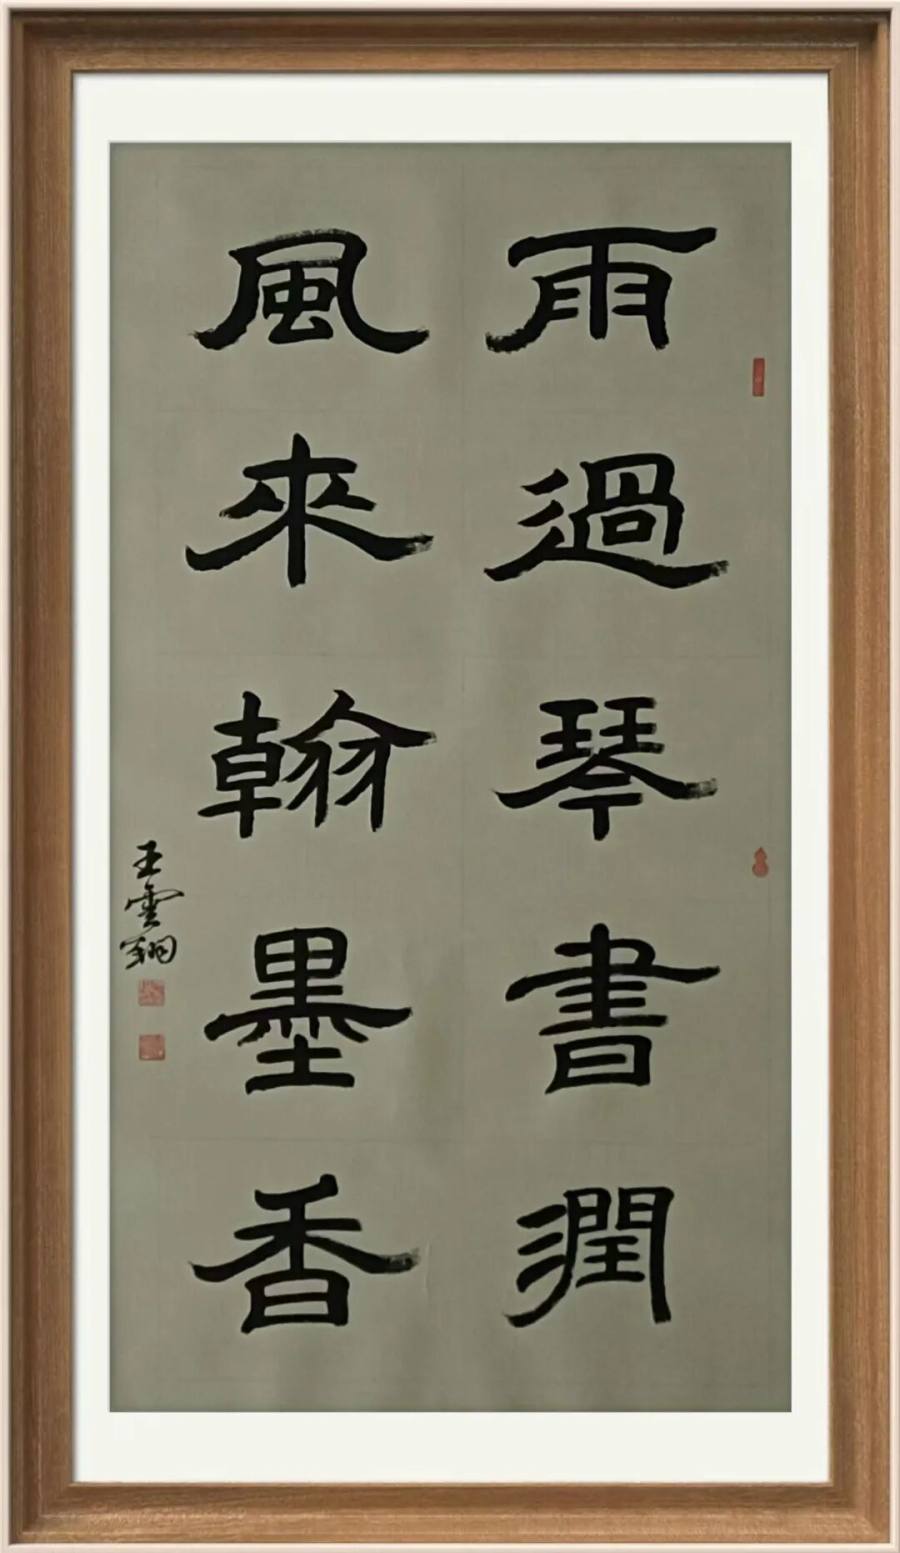 雨過琴書潤
風來翰墨香
王雲鋼